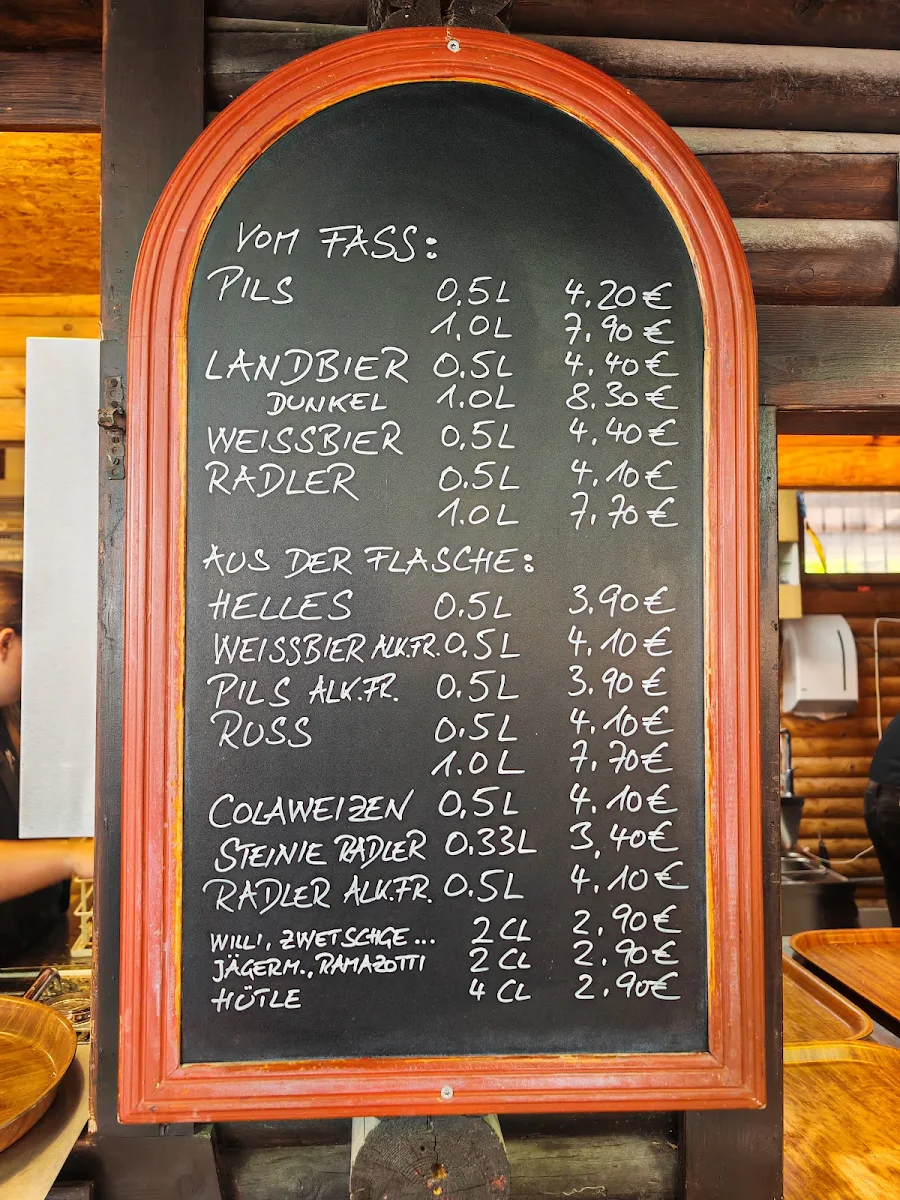 VOM FASS:
PILS 0,5L 4.20€
1.0L 7.90€
LANDBIER 0.5L 4.40€
DUNKEL 1.0L 8.30€
WEISSBIER 0.5L 4.40€
RADLER 0.5L 4.10€
1.0L 7.70€
AUS DER FLASCHE:
HELLES 0.5L 3.90€
WEISSBIER ALK.FR. 0.5L 4.10€
PILS ALK.FR. 0.5L 3.90€
RUSS 0.5L 4.10€
1.0L 7.70€
COLAWEIZEN 0,5L 4.10€
STEINIE RADLER 0.33L 3,40€
RADLER ALK.FR. 0.5L 4.10€
WILLI, ZWETSCHGE... 2 CL 2.90€
JÄGERM., RAMAZOTTI 2 CL 2.90€
HÜTLE 4 CL 2.90€